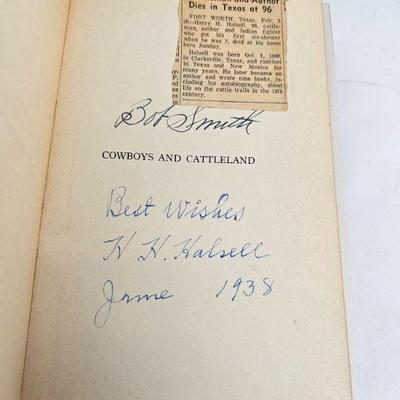 and Author
Dies in Texas at 96
FORT WORTH, Texas, Feb. 3
Harry H. Halsell, 96, cattle-
man, author and Indian fighter
who got his first six-shooter
when he was 7, died at his home
here Sunday.
Halsell was born Oct. 1, 1860,
in Clarksville, Texas, and ranched
in Texas and New Mexico for
many years. He later became an
author and wrote nine books, in-
cluding his autobiography, about
life on the cattle trails in the 19th
century.
Bob Smith
COWBOYS AND CATTLELAND
Best Wishes
H. H. Halsell
June 1938